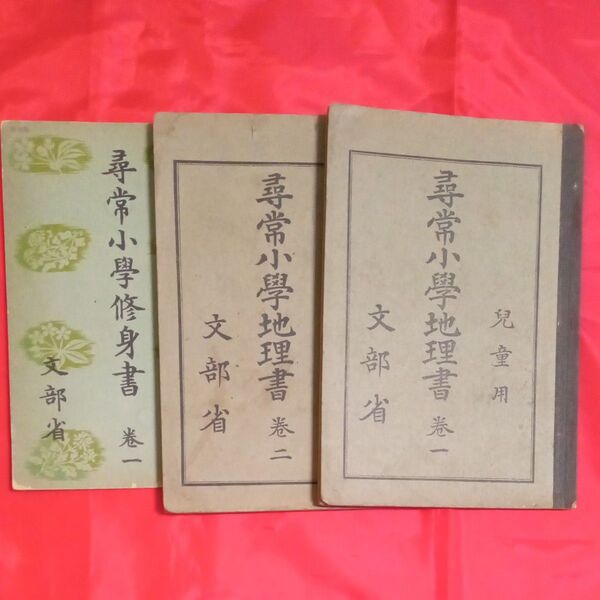 兒童用
尋常小學地理書 卷一
文部省
尋常小學地理書 卷二
文部省
尋常小學修身書 卷一
文部省